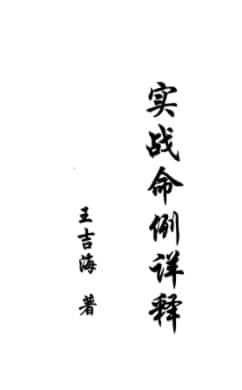 实战命例详释
王吉海 著